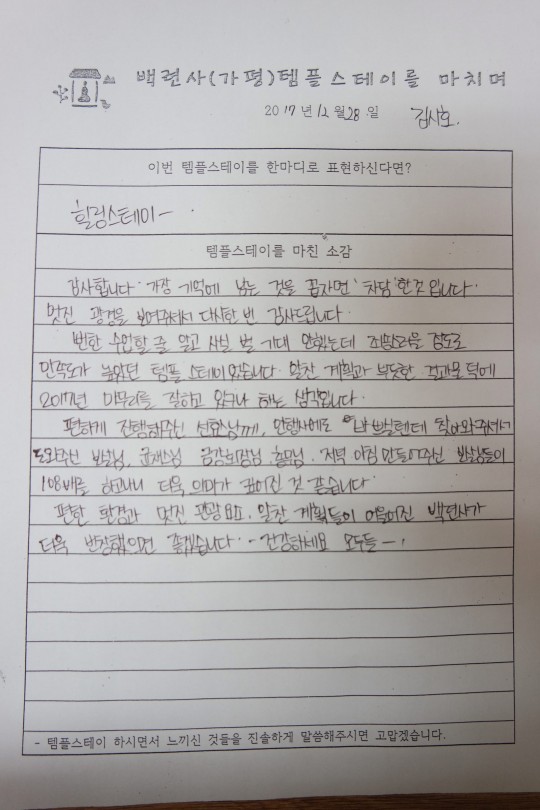 백련사(가평)템플스테이를 마치며
2017년 12월 28일 김시호.
이번 템플스테이를 한마디로 표현하신다면?
힐링스테이 -
템플스테이를 마친 소감
감사합니다. 가장 기억에 남는 것을 꼽자면 '차담' 한것 입니다.
멋진 광경을 보여주셔서 다시한 번 감사드립니다.
뻔한 수업할 줄 알고 사실 별 기대 안했는데 죄송스러울 정도로
만족도가 높았던 템플 스테이였습니다. 알찬 계획과 부듯한 결과물 덕에
2017년 마무리를 잘하고 있구나 하는 생각입니다.
편하게 진행해주신 께, 연말행사에도 바쁘실텐데 찾아와주셔서
도와주신 보살님, 스님 금강회장님 총무님. 저녁 아침 만들어주신 보살님들이
108배를 하고나니 더욱 의미가 깊어진 것 같습니다.
편한 환경과 멋진 관광요소. 알찬 계획들이 어우러진 백련사가
더욱 번창했으면 좋겠습니다. - 건강하세요 모두들 -.
- 템플스테이 하시면서 느끼신 것들을 진솔하게 말씀해주시면 고맙겠습니다.